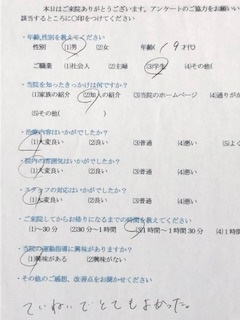 本日はご来院ありがとうございます。アンケートのご協力をお願い
該当するところに○印をつけてください
・年齢,性別を教えてください
性別 (1)男 (2)女 年齢( 19才代)
ご職業 (1)社会人 (2)主婦 (3)学生 (4)その他(
・当院を知ったきっかけは何ですか?
(1)家族の紹介 (2)知人の紹介 (3)当院のホームページ (4)通りが
(5)その他( )
・治療内容はいかがでしたか?
(1)大変良い (2)良い (3)普通 (4)悪い (5)よ
・院内の雰囲気はいかがでしたか?
(1)大変良い (2)良い (3)普通 (4)悪い (5)
・スタッフの対応はいかがでしたか?
(1)大変良い (2)良い (3)普通 (4)悪い (5)
・ご来院してからお帰りになるまでの時間を教えてください
(1)～30分 (2)30分～1時間 (3)1時間～1時間30分 (4)1
・当院の運動指導に興味がありますか?
(1)興味がある (2)興味がない
・その他のご感想、改善点をお聞かせください
ていねいでとてもよかった。